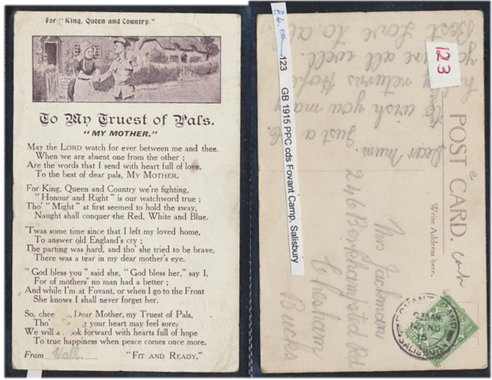 For "King, Queen and Country."
To My Truest of Pals.
"MY MOTHER."
May the LORD watch for ever between me and thee.
When we are absent one from the other;
Are the words that I send with heart full of love.
To the best of dear pals, MY MOTHER.
For King, Queen and Country we're fighting,
"Honour and Right" is our watchword true;
Tho' "Might" at first seemed to hold the sway,
Naught shall conquer the Red, White and Blue.
'Twas some time since that I left my loved home,
To answer old England's cry;
The parting was hard, and tho' she tried to be brave.
There was a tear in my dear mother's eye.
"God bless you" said she, "God bless her," say I,
For of mothers' no man had a better;
And while I'm at Fovant, or when I go to the Front
She knows I shall never forget her.
So, Dear Mother, my Truest of Pals,
Tho' your heart may feel sore;
We will look forward with hearts full of hope
To true happiness when peace comes once more.
From Wall. "FIT AND READY."
123
GB 1915 PPC cds Fovant Camp, Salisbury
123
POST CARD.
Write Address here.
Dear Mum.
Just a
to wish you many
returns Hope
you are all well.
Best Love to all
Mrs Jackman
246 Berkhampstead Rd
Chesham
Bucks
FOVANT CAMP
NO
15
SALISBURY